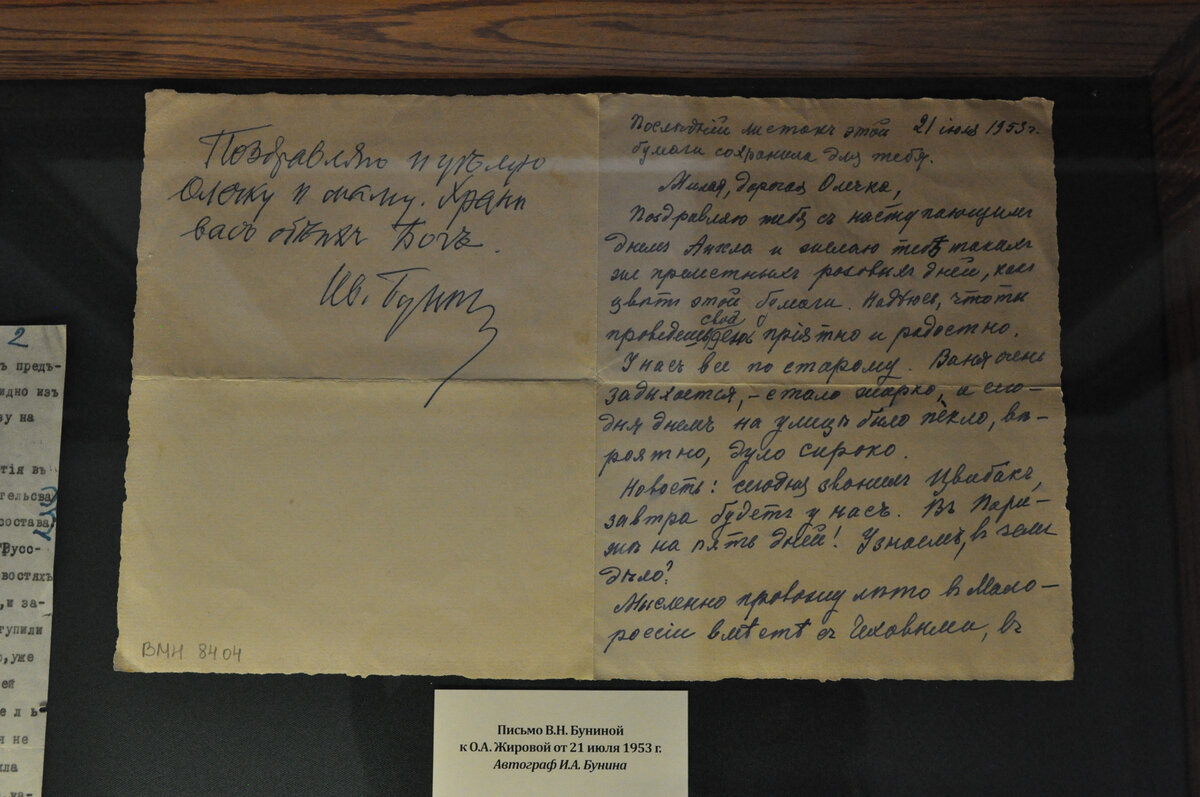 Поздравляю и цѣлую
Олечку и маму. Храни
васъ обѣихъ Богъ.
Ив. Бунин
ВМН 8404
Послѣдній листокъ этой 21 іюля 1953 г.
бумаги сохранила для тебя.
Милая, дорогая Олечка,
Поздравляю тебя съ наступающимъ
днемъ Ангела и желаю тебѣ такихъ
же прелестныхъ розовыхъ дней, какъ
цвѣтъ этой бумаги. Надѣюсь, что ты
проведешь свой день пріятно и радостно.
У насъ все по старому. Ваня очень
задыхается, – стало жарко, а сего-
дня днемъ на улицѣ было пекло, вѣ-
роятно, дуло сироко.
Новость: сегодня звонилъ Цвибакъ,
завтра будетъ у насъ. Въ Пари-
жѣ на пять дней! Узнаемъ, в чемъ
дѣло?
Мысленно провожу лѣто в Мало-
россіи вмѣстѣ съ Чеховыми, въ
2
ъ предъ-
идно из
ву на
тія въ
тельсва
состава,
Русс-
востяхъ
,и за-
тупили
о,уже
ей
е л ь-
я не
ила
,ка-
Письмо В.Н. Буниной
к О.А. Жировой от 21 июля 1953 г.
Автограф И.А. Бунина